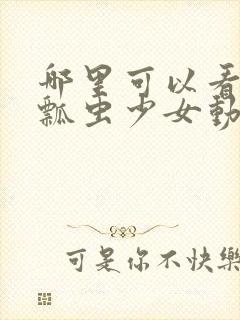 哪里可以看
瓢虫少女動
可是你不快樂